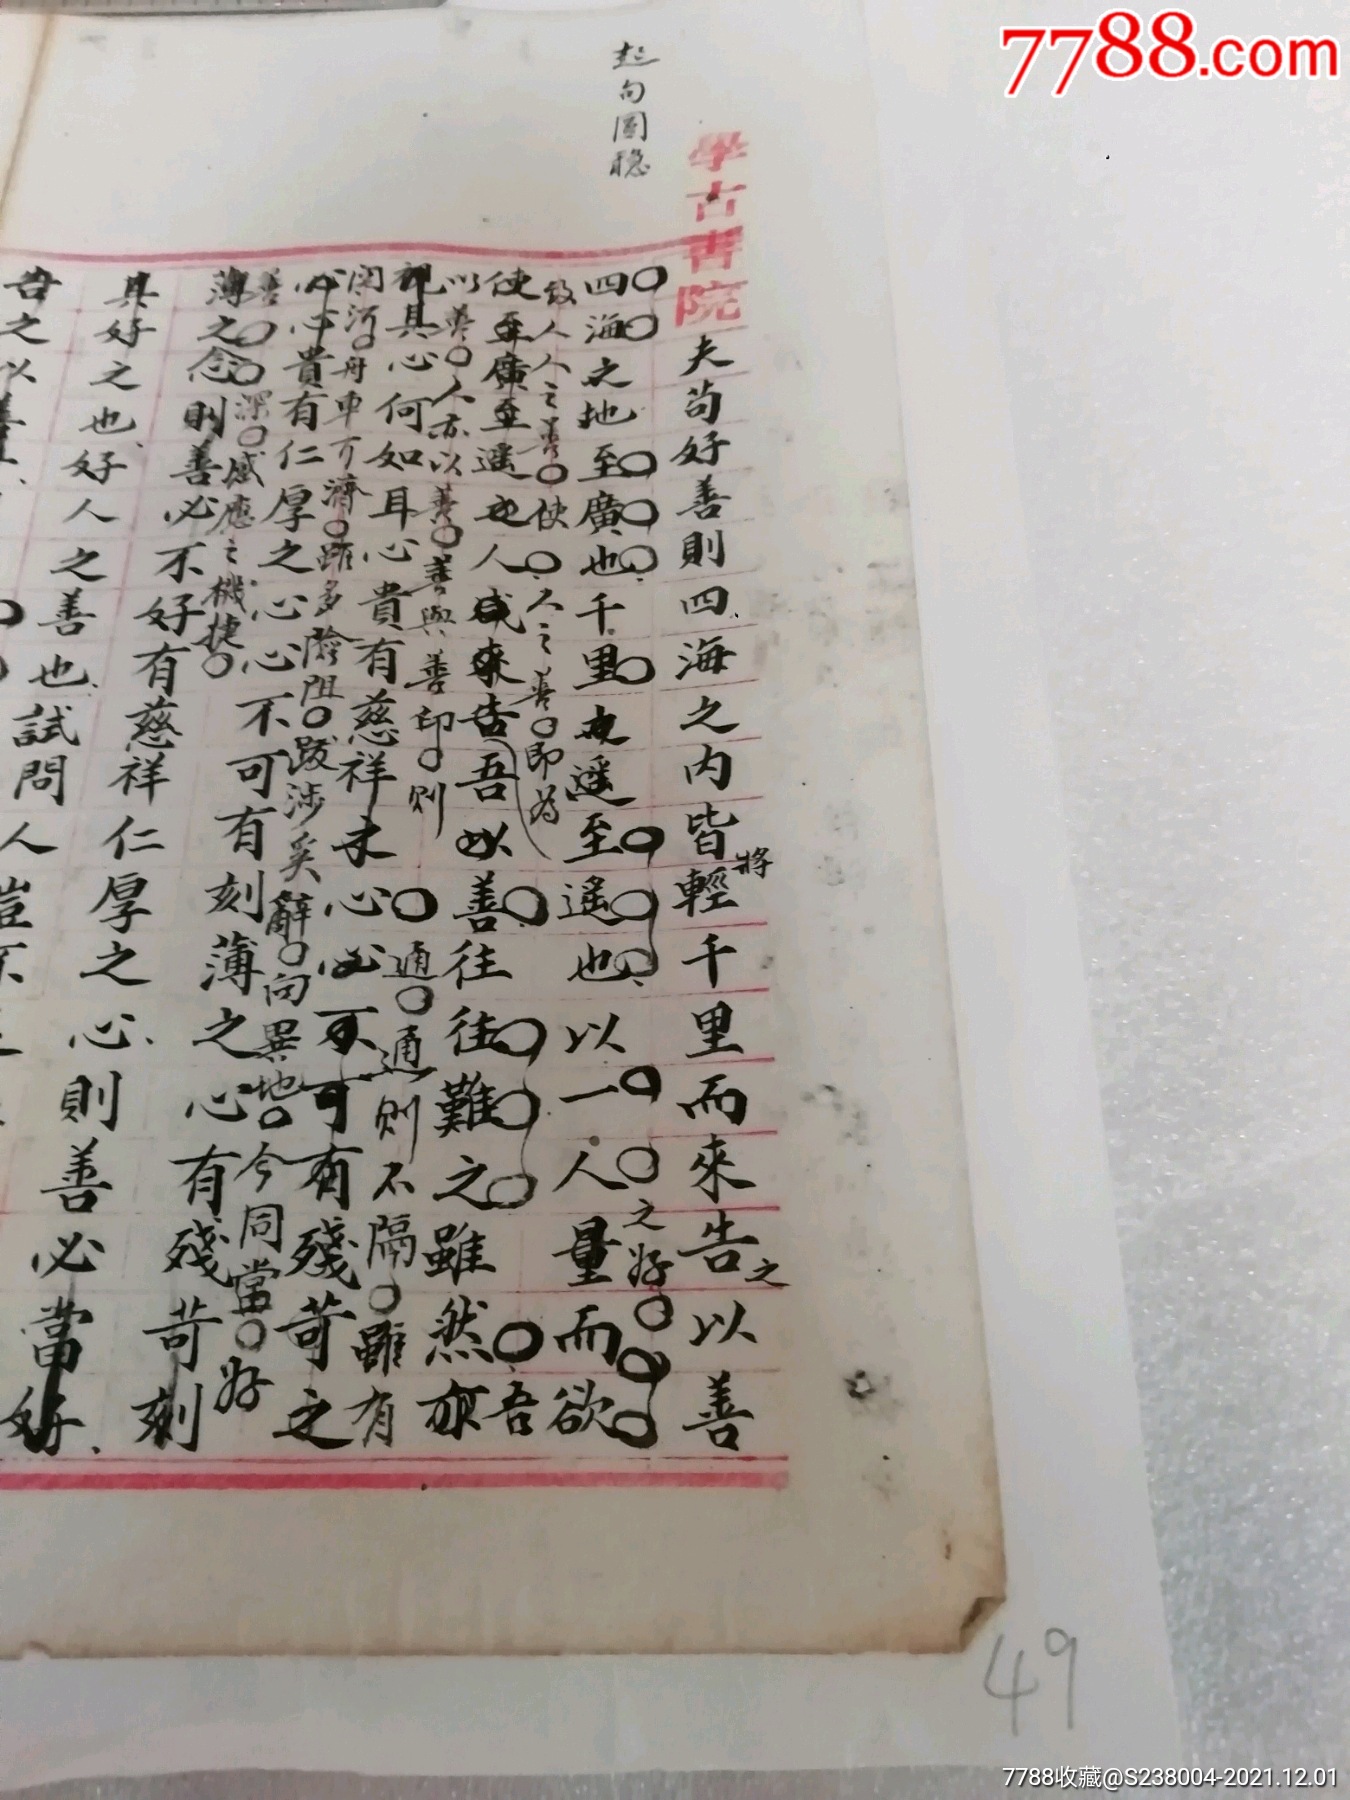 7788.com
起句圓穩
學古書院
夫苟好善則四海之內皆將輕千里而來告之以善
四海之地至廣也千里之遥至遙也以一人之好量而欲
致人人之善使人之善即為吾
使至廣至遥之人咸來告吾以善往往難之雖然亦
以善人亦以善善與善印則通通則不隔雖有
視其心何如耳心貴有慈祥未心必不可有殘苛之
關河舟車可濟雖多險阻跋涉奚辭向異地今同當好
心心貴有仁厚之心心不可有刻薄之心有殘苛刻
善深感應之機捷
薄之念則善必不好有慈祥仁厚之心則善必當好
其好之也好人之善也試問人豈不
告之以善
49
7788收藏@S238004-2021.12.01